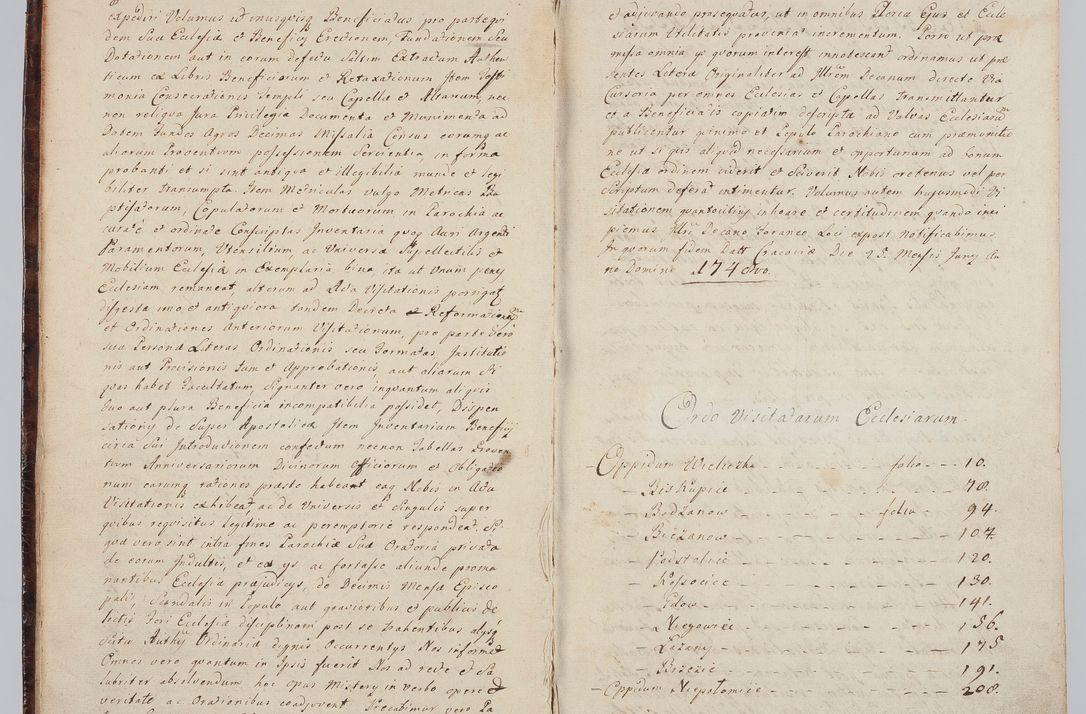 expediri Volumus ut unusquisq Beneficiatus pro parte qui
dem Sua Ecclesia et Beneficij Erectionem, Fundationem Seu
Dotationem aut in eorum defectu Saltim Extractum Authen
ticum ex Libris Beneficiorum et Retaxationum Item Testi
monia Consecrationis Templi seu Capellæ et Altarium, nec
non reliqua Jura Privilegia Documenta et Munimenta ad
Dotem Fundos Agros Decimas Missalia Census eorumq ac
aliorum Proventuum possessionem Servientia, in forma
probanti et si sint antiqua et illegibilia munde et legi
biliter transumpta. Item Metriculas vulgo Metricas Ba
ptisatorum, Copulatorum et Mortuorum in Parochia ac
curate et ordinate Conscriptas Inventaria quoq Auri Argenti
Paramentorum, Utensilium, ac Universa Supellectilis et
Mobilium Ecclesiæ in Exemplaria bina ita ut Unum penes
Ecclesiam remaneat, alterum ad Acta Visitationis porrigat
digesta uno et antiquiora tandem Decreta et Reformationes
et Ordinationes Anteriorum Visitationum, pro parte vero
suæ Personæ Literas Ordinationis seu Formatas, Institutio
nis aut Provisionis tum et Approbationis, aut aliarum Si
quas habet Facultatum, Signanter vero inquantum aliquis
duo aut plura Beneficia incompatibilia possidet, Dispen
sationis de Super Apostolicæ Item Inventarium Beneficij
circa Sui Introductionem confectum necnon Tabellas Proven
tuum Anniversariorum Divinorum Officiorum et Obligatio
num earumq rationes præsto habeant eaq Nobis in Actu
Visitationis exhibeat, ac de Universis et Singulis super
quibus requisitus legitime ac peremptorie respondeat. Si
qua vero sint intra fines Parochiæ Suæ Oratoria privata
de eorum Indultis, et ex ijs ac fortasse aliunde proma
nantibus Ecclesiæ præjudicijs, de Decimis Mensæ Episco
palis, Scandalis in Populo aut gravioribus et publicis de
lictis Fori Ecclesiæ disciplinam post se trahentibus alijsq
Ordinaria dignis Occurrentijs Nos informet
Omnes vero quantum in Ipsis fuerit Nos ad recte et Sa
lubriter absolvendum hoc opus Mistery in verbo opere et
veritate ac Orationibus coadjuvent Precabimur vero Pa
et adjuvando prosequatur, ut in omnibus Gloria Ejus et Eccle
siarum Utilitatis proveniat incrementum. Porro ut præ
missa omnia ijs quorum interest innotescant ordinamus ut præ
sentes Literæ Originaliter ad Illrem Decanum directe Via
Cursoria per omnes Ecclesias et Capellas transmittantur
et a Beneficiatis copiatim descripta ad Valvas Ecclesiarum
publicentur quinimo et Populo Parochiano cum præmonitio
ne ut si quis aliquid necessarium et opportunum ad bonum
Ecclesiæ ordinem viderit et Sciverit Nobis oretenus vel per
Scriptum deferat intimentur. Volumus autem hujusmodi Vi
sitationem quantocitius inhoare et certitudinem quando inci
piemus Illri Decano Foraneo Loci expost Notificabimus.
In quorum fidem Datt Cracoviæ Die 25. Mensis Junij An
no Domini 174
Ordo Visitatarum Ecclesiarum.
Oppidum Wieliczka folio 10.
Biskupice 78.
Bodzanow folio 94.
Bieżanow 107.
Podstolice 120.
Kossocice 130.
Gdow 141.
Niegowić 156.
Łazany 175
Brzezie 191.
Oppidum Niepołomice 208.